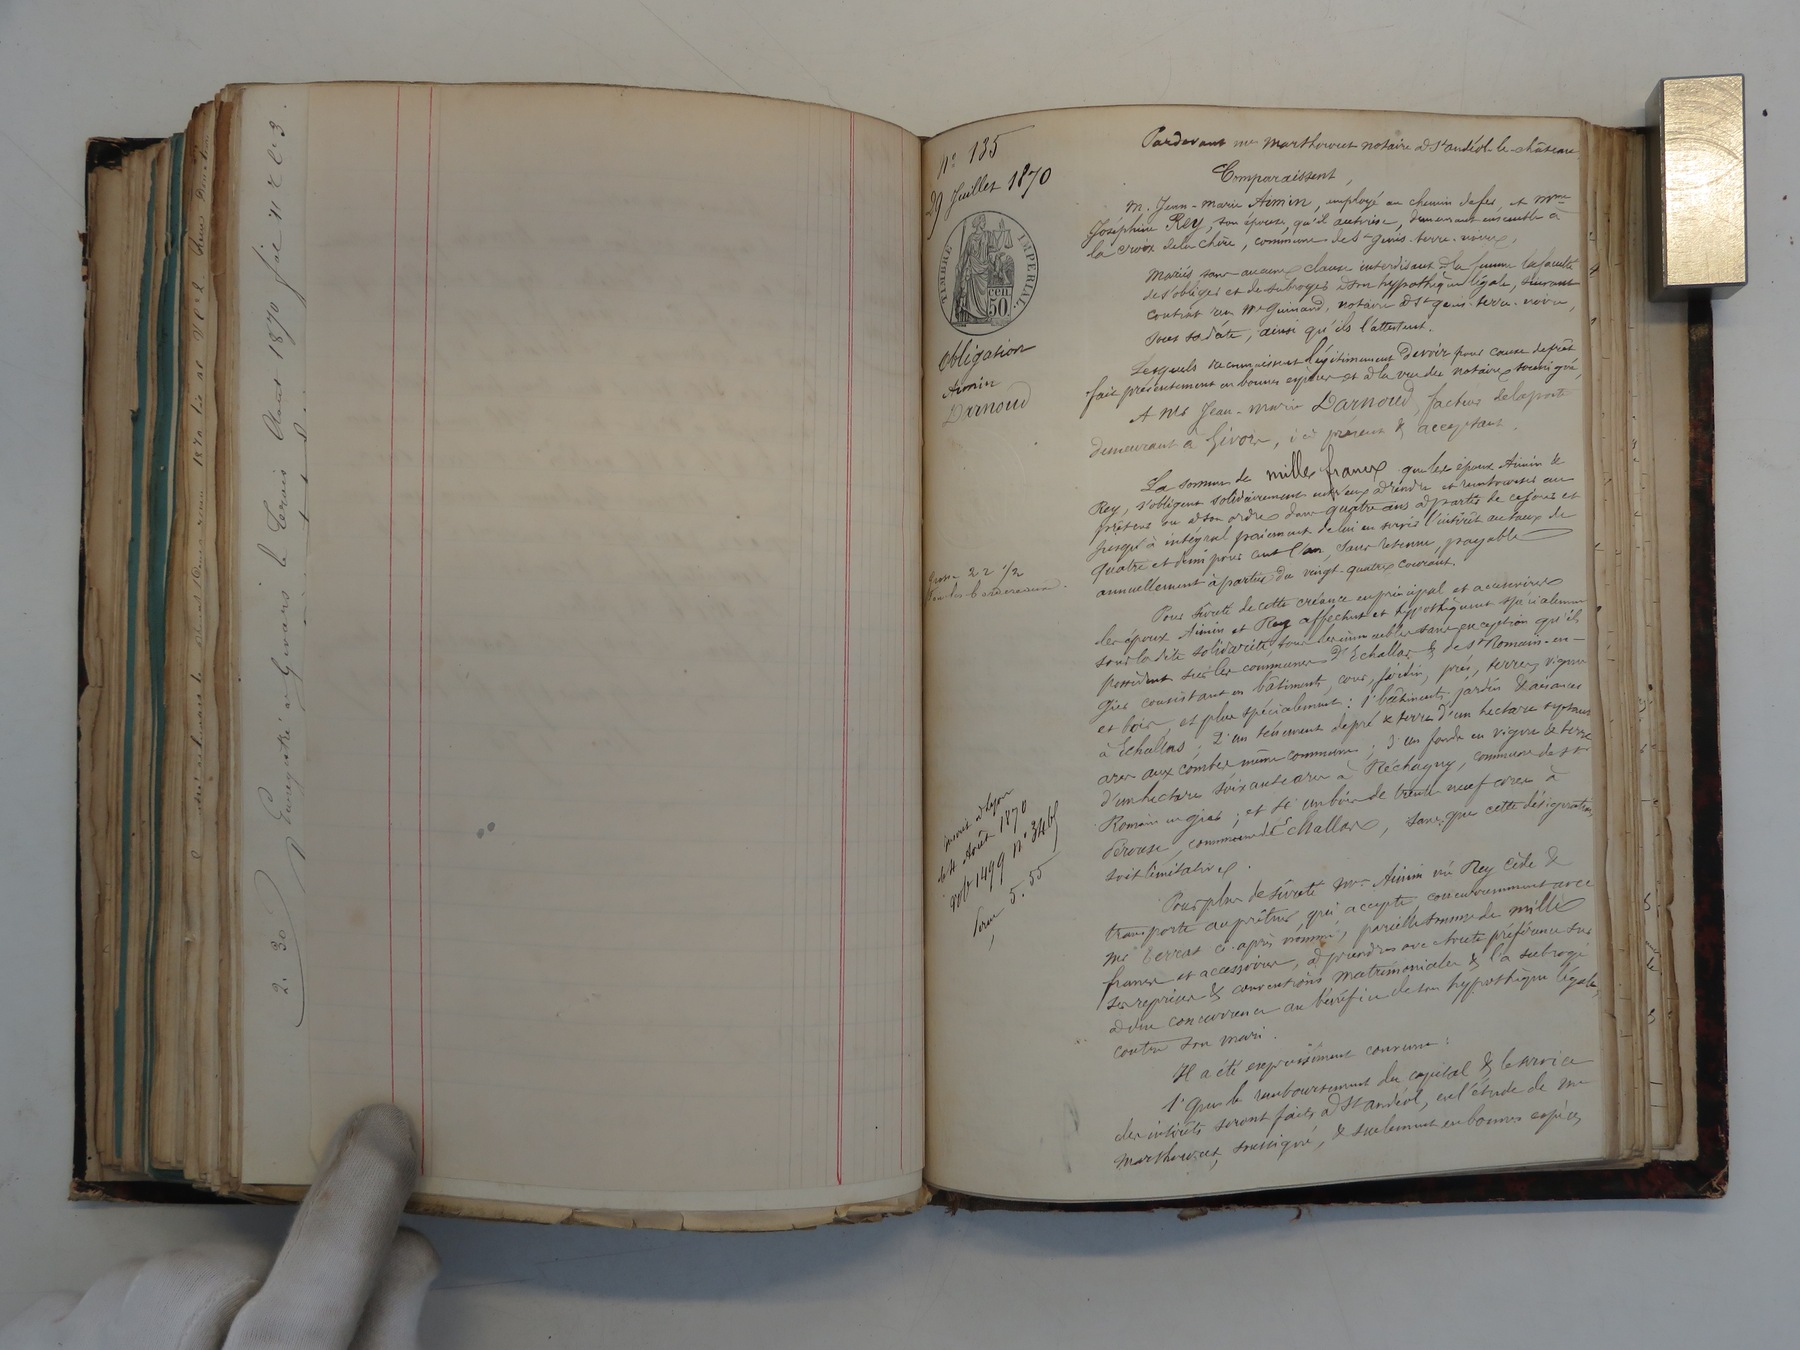 2. 30
Enregistré à Givors le trois Août 1870 f
nº 135
29 Juillet 1870
TIMBRE IMPERIAL
50 cen.
Obligation
Aimin
Darnoud
22 1/2
inscrit à Lyon
le 4 Août 1870
vol 1499 nº 346
5. 55
Pardevant me Marthouret notaire à St andéol-le-château
Comparaissent,
M. Jean-Marie Aimin, employé au chemin de fer, et Mme
Joséphine Rey, son épouse, qu'il autorise, demeurant ensemble à
la croix de la Chèvre, commune de St genis-terre-noire,
Mariés sans aucune clause interdisant à la femme la faculté
de s'obliger et de subroger à son hypothèque légale, suivant
contrat reçu Me Guinand, notaire à St genis-terre-noire,
sous sa date, ainsi qu'ils l'attestent.
Lesquels reconnaissent légitimement devoir pour cause de prêt
fait présentement en bonnes espèces et à la vue du notaire soussigné,
A Mr Jean-Marie Darnoud, facteur de la poste
demeurant à Givors, ici présent & acceptant.
La somme de mille francs que les époux Aimin &
Rey, s'obligent solidairement entr'eux à rendre et rembourser au
prêteur ou à son ordre dans quatre ans à partir de ce jour et
jusqu'à intégral paiement de lui en servir l'intérêt au taux de
quatre et demi pour cent l'an, sans retenue, payable
annuellement à partir du vingt-quatre courant.
Pour sûreté de cette créance en principal et accessoires
les époux Aimin et Rey affectent et hypothèquent spécialement
sous la dite solidarité, tous les immeubles sans exception qu'ils
possèdent sur les communes d'Echallas & de St Romain-en-
Gier consistant en bâtiments, cour, jardin, prés, terres, vignes
et bois, et plus spécialement: 1º bâtiments, jardin & aisances
à Echallas; 2º un tènement de pré & terre d'un hectare
ares aux combes même commune; 3º un fonds en vigne & terre
d'un hectare soixante ares à Réchagny, commune de St
Romain en gier; et 4º un bois de trente neuf ares à
commune d'Echallas, sans que cette désignation
soit limitative.
Pour plus de sûreté Me Aimin née Rey cède &
transporte au prêteur, qui accepte concurremment avec
Mr ci-après nommé, pareille somme de mille
francs et accessoires, à prendre avec toute préférence sur
ses reprises & conventions matrimoniales & l'a subrogé
à due concurrence au bénéfice de son hypothèque légale,
contre son mari.
Il a été expressément convenu:
1º Que le remboursement du capital & le service
des intérêts seront faits à St andéol, en l'étude de Me
Marthouret, soussigné, & seulement en bonnes espèces